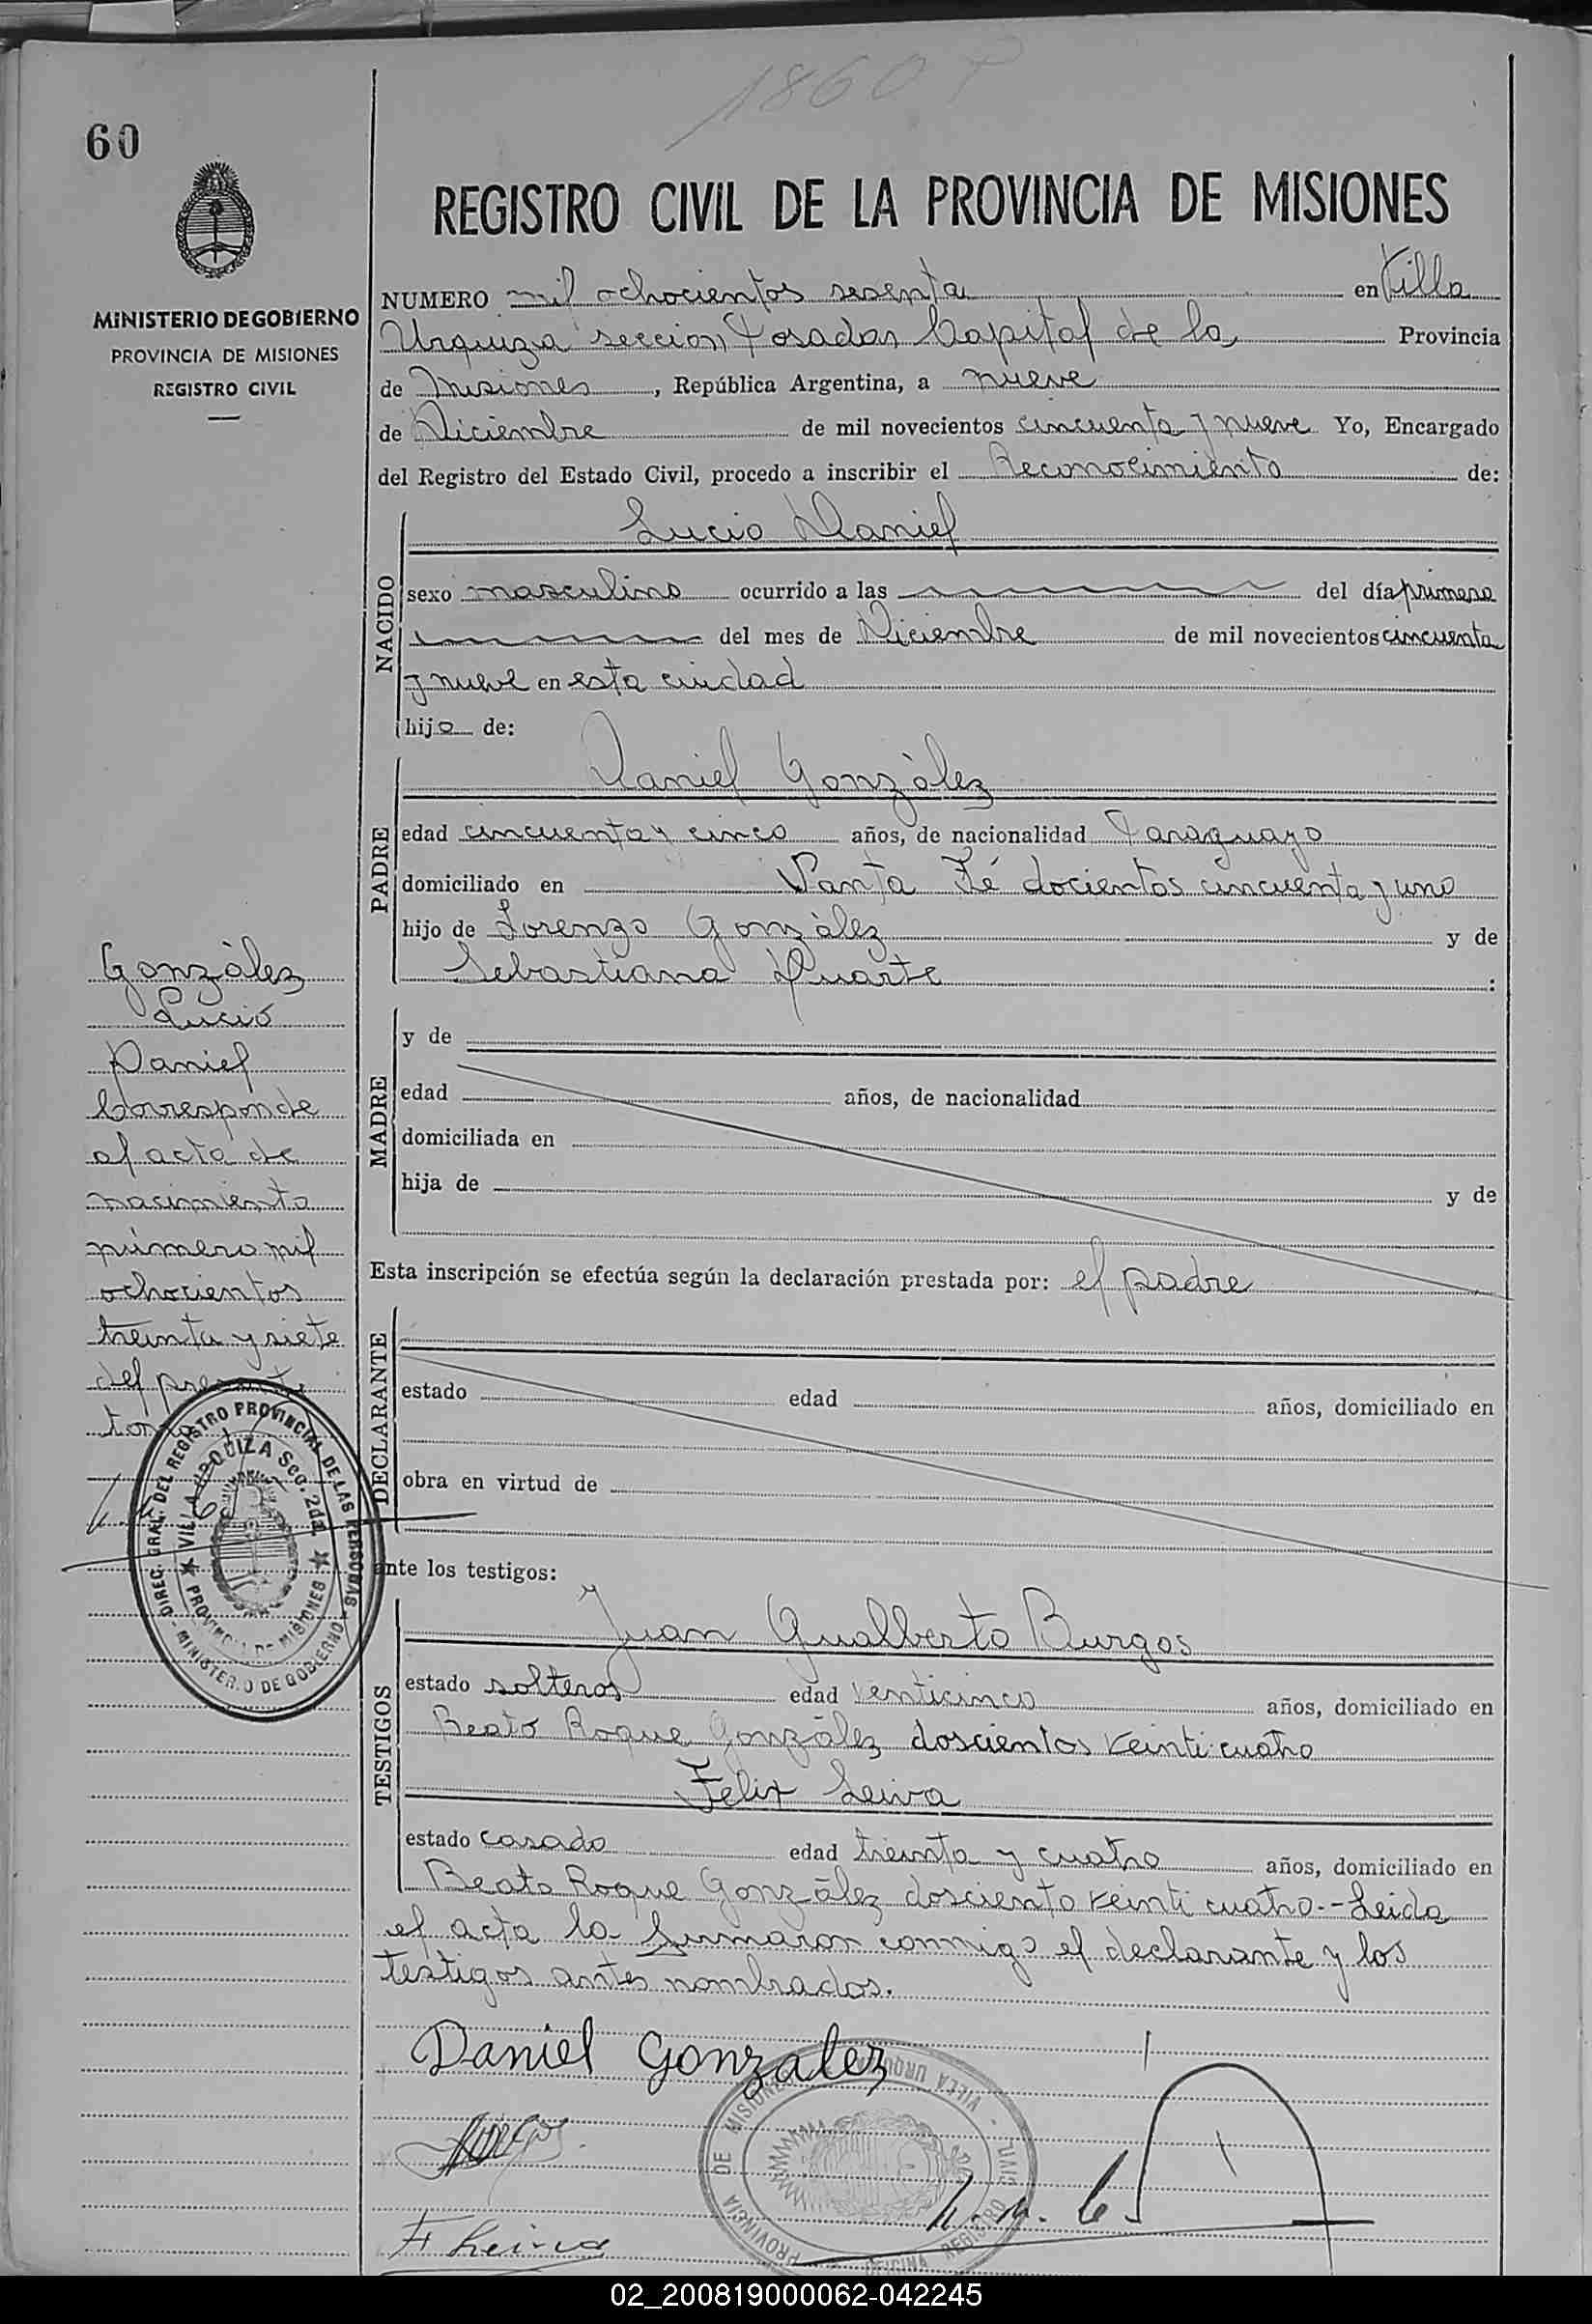 1860 P
60
REGISTRO CIVIL DE LA PROVINCIA DE MISIONES
MINISTERIO DE GOBIERNO
PROVINCIA DE MISIONES
REGISTRO CIVIL
NUMERO mil ochocientos sesenta en Villa
Urquiza sección Posadas Capital de la Provincia
de Misiones, República Argentina, a nueve
de Diciembre de mil novecientos cincuenta y nueve Yo, Encargado
del Registro del Estado Civil, procedo a inscribir el Reconocimiento de:
NACIDO
Lucio Daniel
sexo masculino ocurrido a las del día primero
del mes de Diciembre de mil novecientos cincuenta
y nueve en esta ciudad
hijo de:
PADRE
Daniel Gonzàlez
edad cincuenta y cinco años, de nacionalidad Paraguayo
domiciliado en Santa Fé docientos cincuenta y uno
hijo de Lorenzo Gonzàlez y de
Sebastiana Duarte :
MADRE
y de
edad años, de nacionalidad
domiciliada en
hija de y de
Esta inscripción se efectúa según la declaración prestada por: el padre
DECLARANTE
estado edad años, domiciliado en
obra en virtud de
ante los testigos:
TESTIGOS
Juan Gualberto Burgos
estado solteros edad venticinco años, domiciliado en
Beato Roque Gonzàlez doscientos veinti cuatro
Felix Leiva
estado casado edad treinta y cuatro años, domiciliado en
Beato Roque Gonzàlez dosciento veinti cuatro.-Leida
el acta la firmaron conmigo el declarante y los
testigos antes nombrados.
Daniel Gonzalez
Burgos
F Leiva
Gonzàlez
Lucio
Daniel
Corresponde
al acta de
nacimiento
número mil
ochocientos
treinta y siete
del presente
tomo
DIREC. GRAL. DEL REGISTRO PROVINCIAL DE LAS PERSONAS - MINISTERIO DE GOBIERNO -
VILLA URQUIZA Scc. 2da.
PROVINCIA DE MISIONES
PROVINCIA DE MISIONES - VILLA URQUIZA -
OFICINA REGISTRO CIVIL
02_200819000062-042245